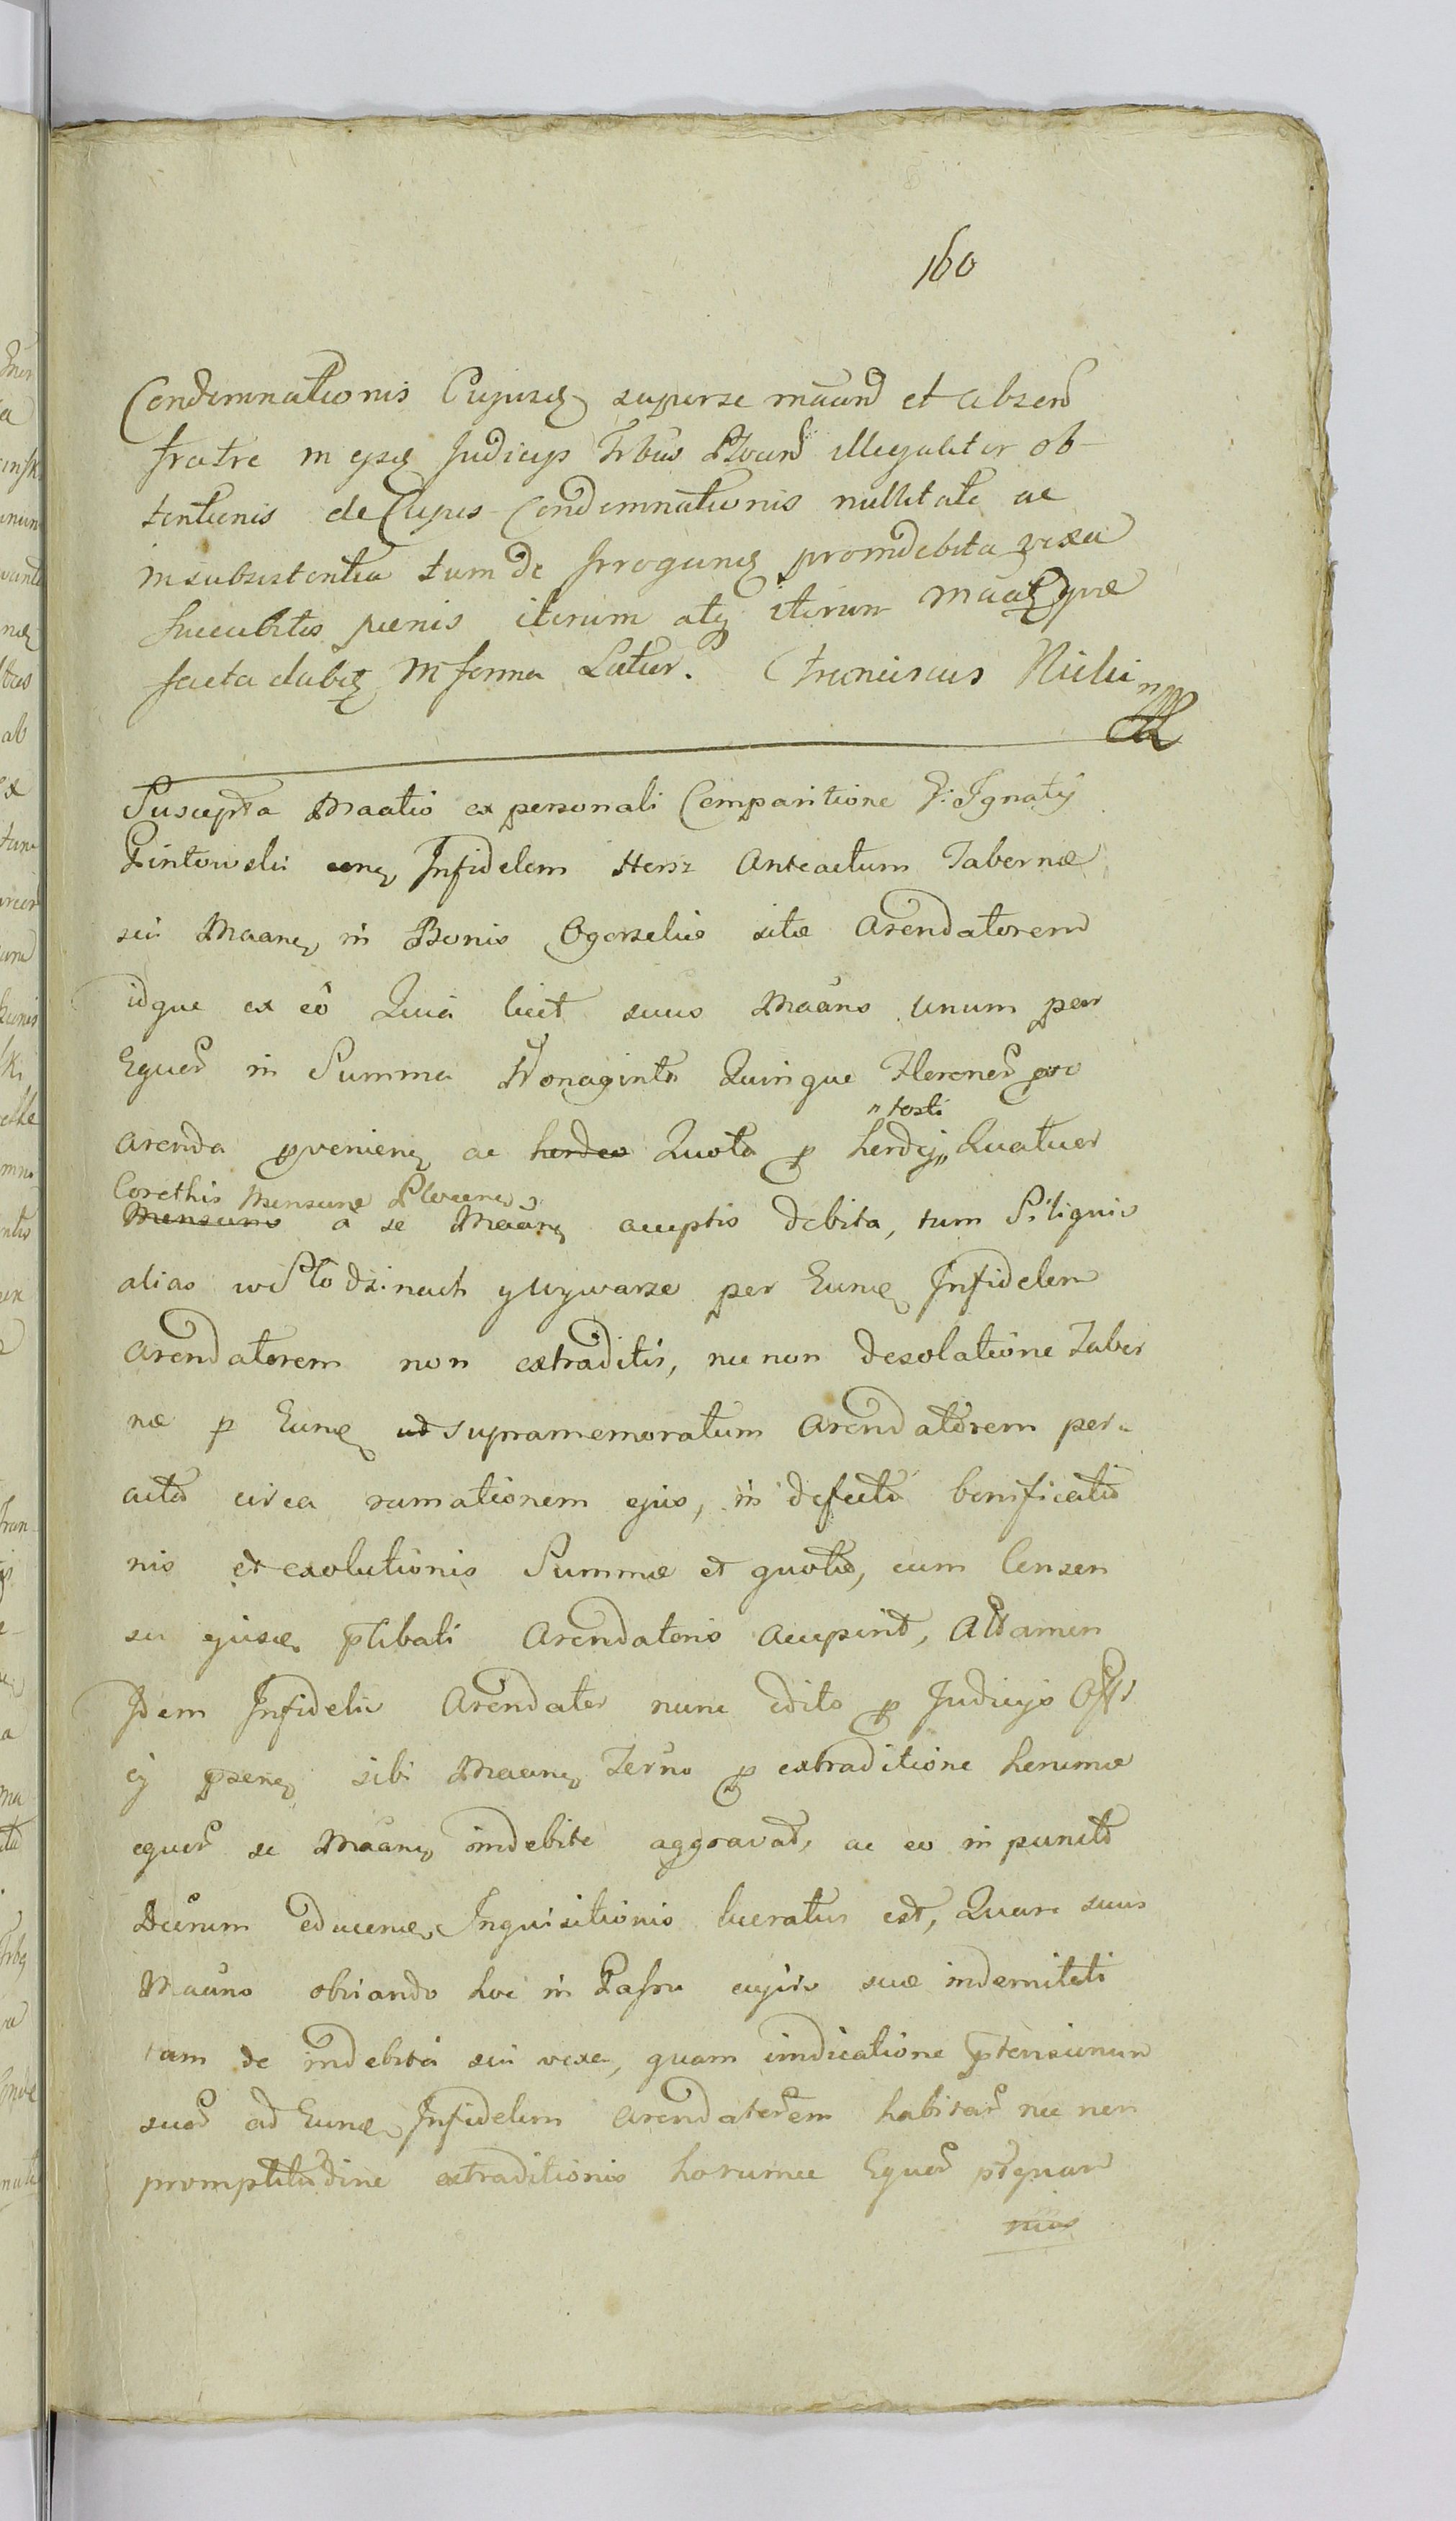 160
Condemnationis Cujusq superse māand et absend
fratre in ejsq Judicijs Trbus Plocand illegaliter ob-
tentionis de Clejus Condemnationis nullitate ac
insubsistentia tum de Irroganq proindebita vexa
succubitis paenis iterum atq iterum
facta dabq in forma Latior. Franciscus
Suscepta Maatio ex personali Comparitione G: Ignatij
Pintowski conq Infidelem Hersz Anteactum Tabernæ
sui Maanq in Bonis Ogorzelice sitæ Arendatorem
idque ex eô Quia licet suus Maāns unum par
Equor in Summa Nonaginta Quinque Florenor pro
"tosti
arenda pvenienq ac hordeo Quota p hordej" Quatuor
Corethis Mensuræ Plocens
Mensuræ a se Maānq acceptis debita, tum Siliginis
alias w Słodzinach y Wywarze per Eunq Infidelem
Arendatorem non extraditis, nec non desolatione Taber
næ p Eunq ut supramemoratum Arendatorem per-
acta circa rumationem ejus, in defectu bonificatio
nis et exolutionis Summæ et quota, cum Consen
su ejusq ptibati Arendatoris acceperit, Attamen
Idem Infidelis Arendator nunc edito p Judicijs Off
ij psenq sibi Maanq Termo p extraditione horumce
equor se Maānq indebite aggravat, ac eo in puncto
Decrum educenq Inquisitionis lucratus est, Quare suus
Maāns obviando hoc in Passu cujsvis suæ indemnitati
tam de indebita sui vexa, quam vindicatione ptensionum
suor ad Eunq Infidelem Arendatorem habitar nec non
promptitudine extraditionis horumce Equor